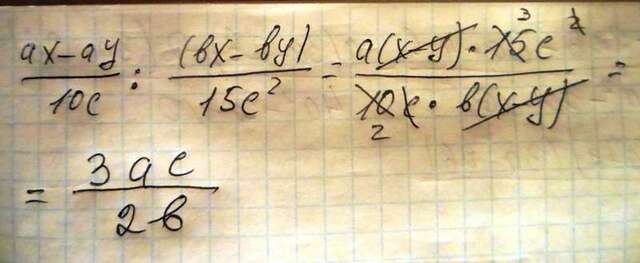 (ax-ay)/(10c) : ((bx-by))/(15c²) = (a(x-y)·15c²)/(10c·b(x-y)) = 3 2
= (3ac)/(2b)